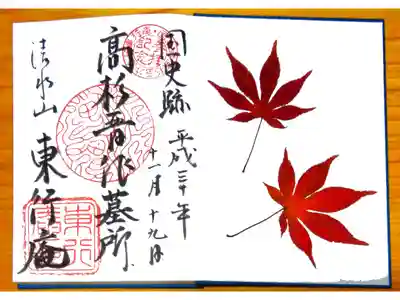 国史跡 平成三十年
十一月十九日
高杉晋作墓所
清水山 東行庵